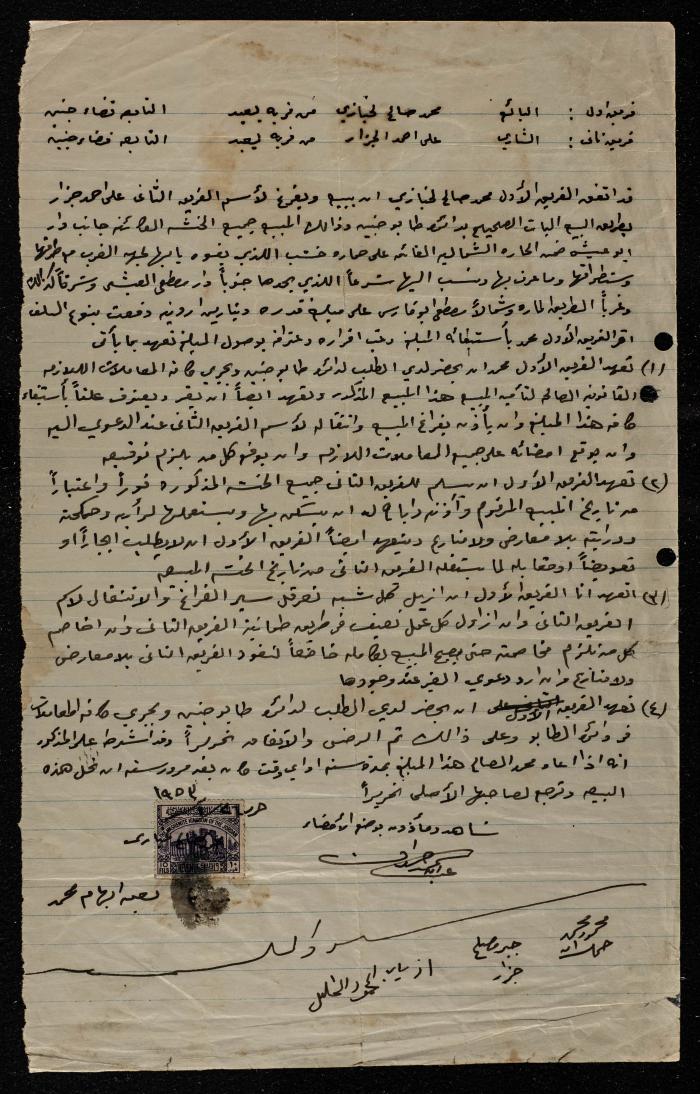 فريق اول : البائع محمد صالح لخبازي من قرية يعبد التابعه قضاء جنين
فريق ثاني : الشاري علي احمد الجزار من قرية يعبد التابعه قضاء جنين
قد اتفق الفريق الأول محمد صالح لخبازي ان يبيع ويفرغ لأسم الفريق الثاني علي احمد جزار
بطريق البيع البات الصحيح بدائرة طابو جنين وذالك المبيع جميع الخشه الكائنه جانب دار
ابو عيشه ضمن الحاره الشماليه القائمه على حاره خشب اللذي بفوه بابها لجهة الغرب مع طرقها
ومستطرقها وما عرف بها ونسب اليها شرعاً اللذي يحدها جنوباً دار مصطفى العيشه وشرقاً كذالك
وغرباً الطريق الماره وشمالاً مصطفى ابو فارس على مبلغ قدره دنانير اردنيه دفعت بنوع السلف
اقر الفريق الأول محمد بأستيفائه المبلغ وعب اقراره واعترافه بوصول المبلغ تعهد بما يأتي
(١) تعهد الفريق الأول محمد ان يحضر لدي الطلب لدائرة طابو جنين ويجري كافة المعاملات اللازمه
القانونيه الصالحه لتأكيد المبيع هذا المبيع المذكور وتعهد ايضاً ان يقر ويعترف علناً بأستيفاء
كافة هذا المبلغ وان يأذن بفراغ المبيع وانتقاله لأسم الفريق الثاني عند الدعوي اليه
وان يوقع امضائه على جميع المعاملات اللازمه وان يوقع كل من يلزم توقيعه
(٢) تعهد الفريق الأول ان يسلم للفريق الثاني جميع الخشه المذكوره فوراً واعتباراً
من تاريخ المبيع المرقوم وأذن واباح له ان يسكن بها ويستعملها لرأيه وحكمته
ودرايته بلا معارض ولا منازع ويتعهد ايضاً الفريق الأول ان لا يطلب ايجاراً او
تعويضاً او مقابله لما يستغله الفريق الثاني من تاريخ الخشه المبيعه
(٣) اتعهد انا الفريق الأول ان ازيل كل شبه تعرقل سير الفراغ والانتقال لاسم
الفريق الثاني وان ازاول كل عمل تعيف في طريق طمأنينة الفريق الثاني وان اخاصم
كل من يلزم مخاصمته حتى يصبح المبيع بكامله خاضعاً لنفوذ الفريق الثاني بلا معارض
ولا منازع وان ارد دعوي الغير عند وجودها
(٤) تعهد الفريق الأول ان يحضر لدي الطلب لدائرة طابو جنين ويجري كافة المعاملات
في دائرة الطابو وعلى ذالك تم الرضى والاتفاق تحريراً وقد اشترط على المذكور
انه اذا اعاد محمد الصالح هذا المبلغ بمدة سنه او اي وقت كان بغير مرور سنه ان تحل هذه
البيعه وترجع لصاحبها الأصلي تحريراً
١٩٥٣
شاهد ومأذون بوضع الأمضاء
بصمة ابهام محمد
محمود محمد
جبر مصلح
جزار